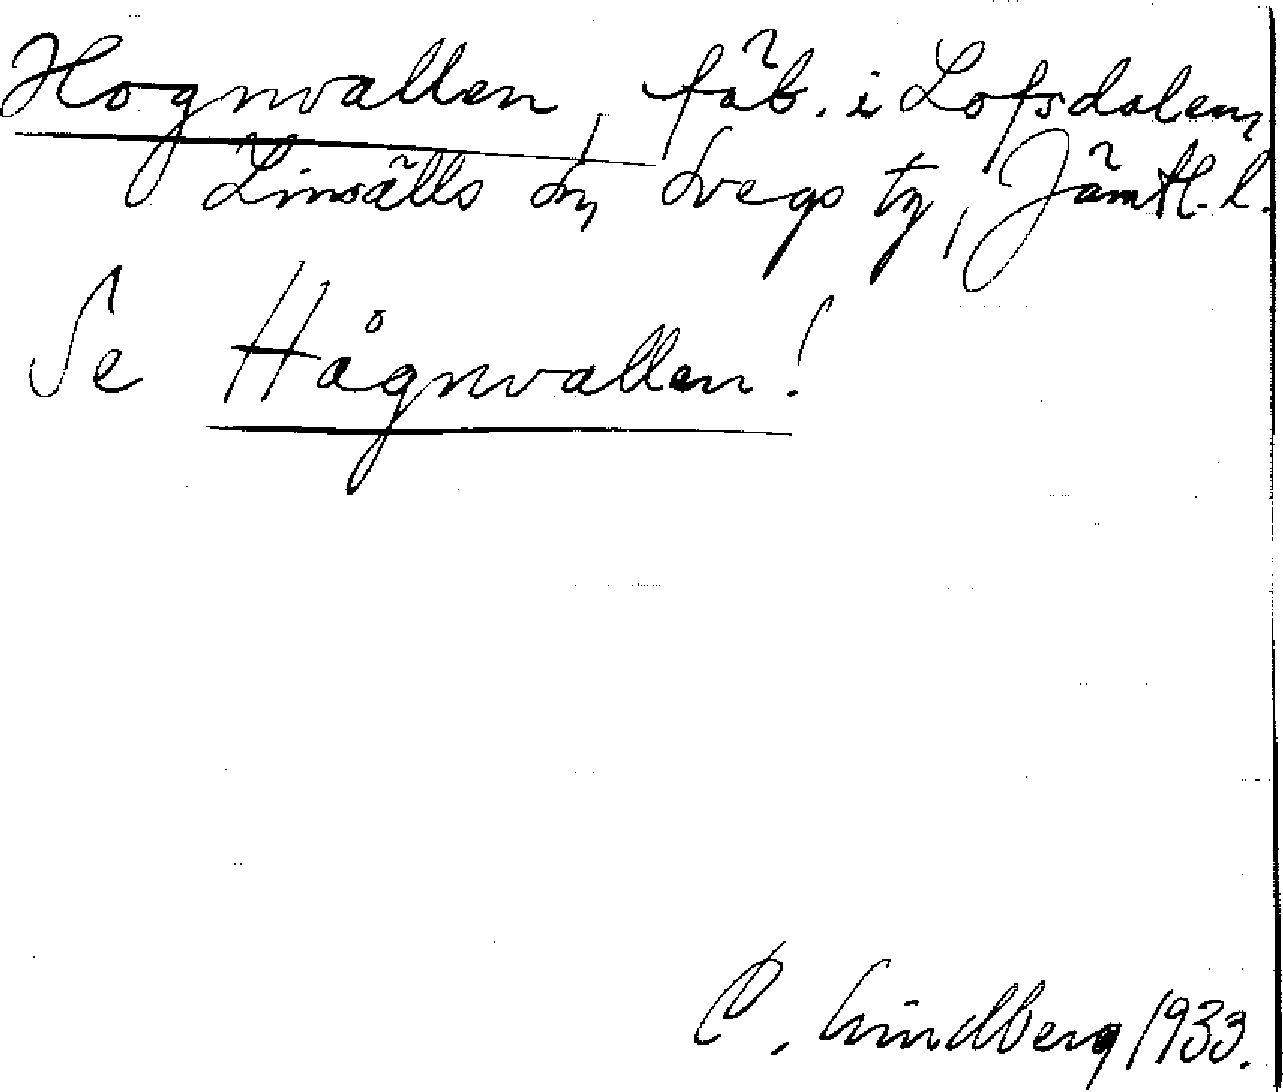 Hognvallen, fäb. i Lofsdalen,
Linsälls sn, Svegs tg, Jämtl. l.
Se Hågnvallen!
C. Lindberg 1933.